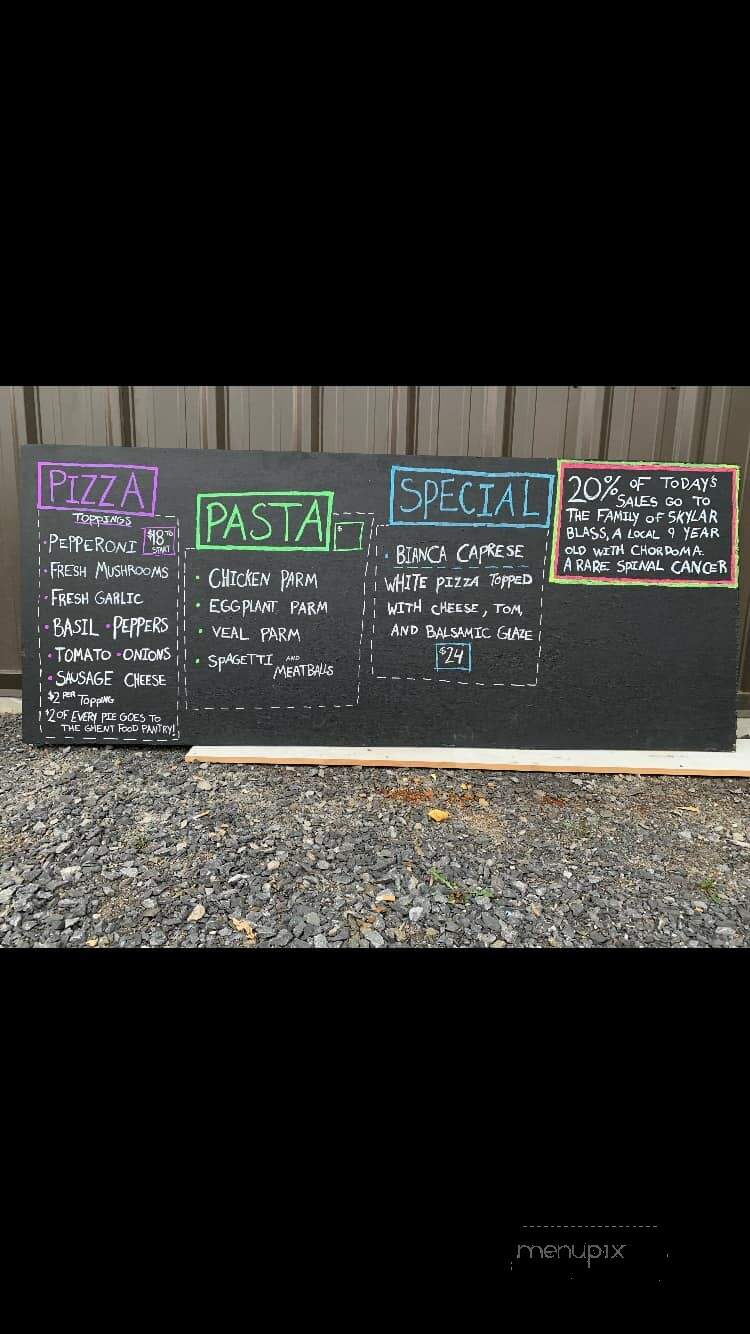 PIZZA
TOPPINGS
$18 TO START
• PEPPERONI
• FRESH MUSHROOMS
• FRESH GARLIC
• BASIL • PEPPERS
• TOMATO • ONIONS
• SAUSAGE CHEESE
$2 PER TOPPING
$2 OF EVERY PIE GOES TO
THE GHENT FOOD PANTRY!
PASTA
$
• CHICKEN PARM
• EGGPLANT PARM
• VEAL PARM
• SPAGETTI AND MEATBALLS
SPECIAL
• BIANCA CAPRESE
WHITE PIZZA TOPPED
WITH CHEESE, TOM,
AND BALSAMIC GLAZE
$24
20% OF TODAYS
SALES GO TO
THE FAMILY OF SKYLAR
BLASS, A LOCAL 9 YEAR
OLD WITH CHORDOMA.
A RARE SPINAL CANCER
menupix